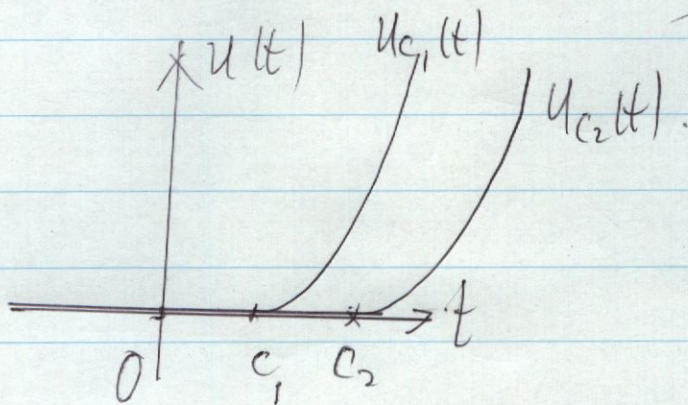 u(t)
u_{c_1}(t)
u_{c_2}(t).
t
0
c_1
c_2